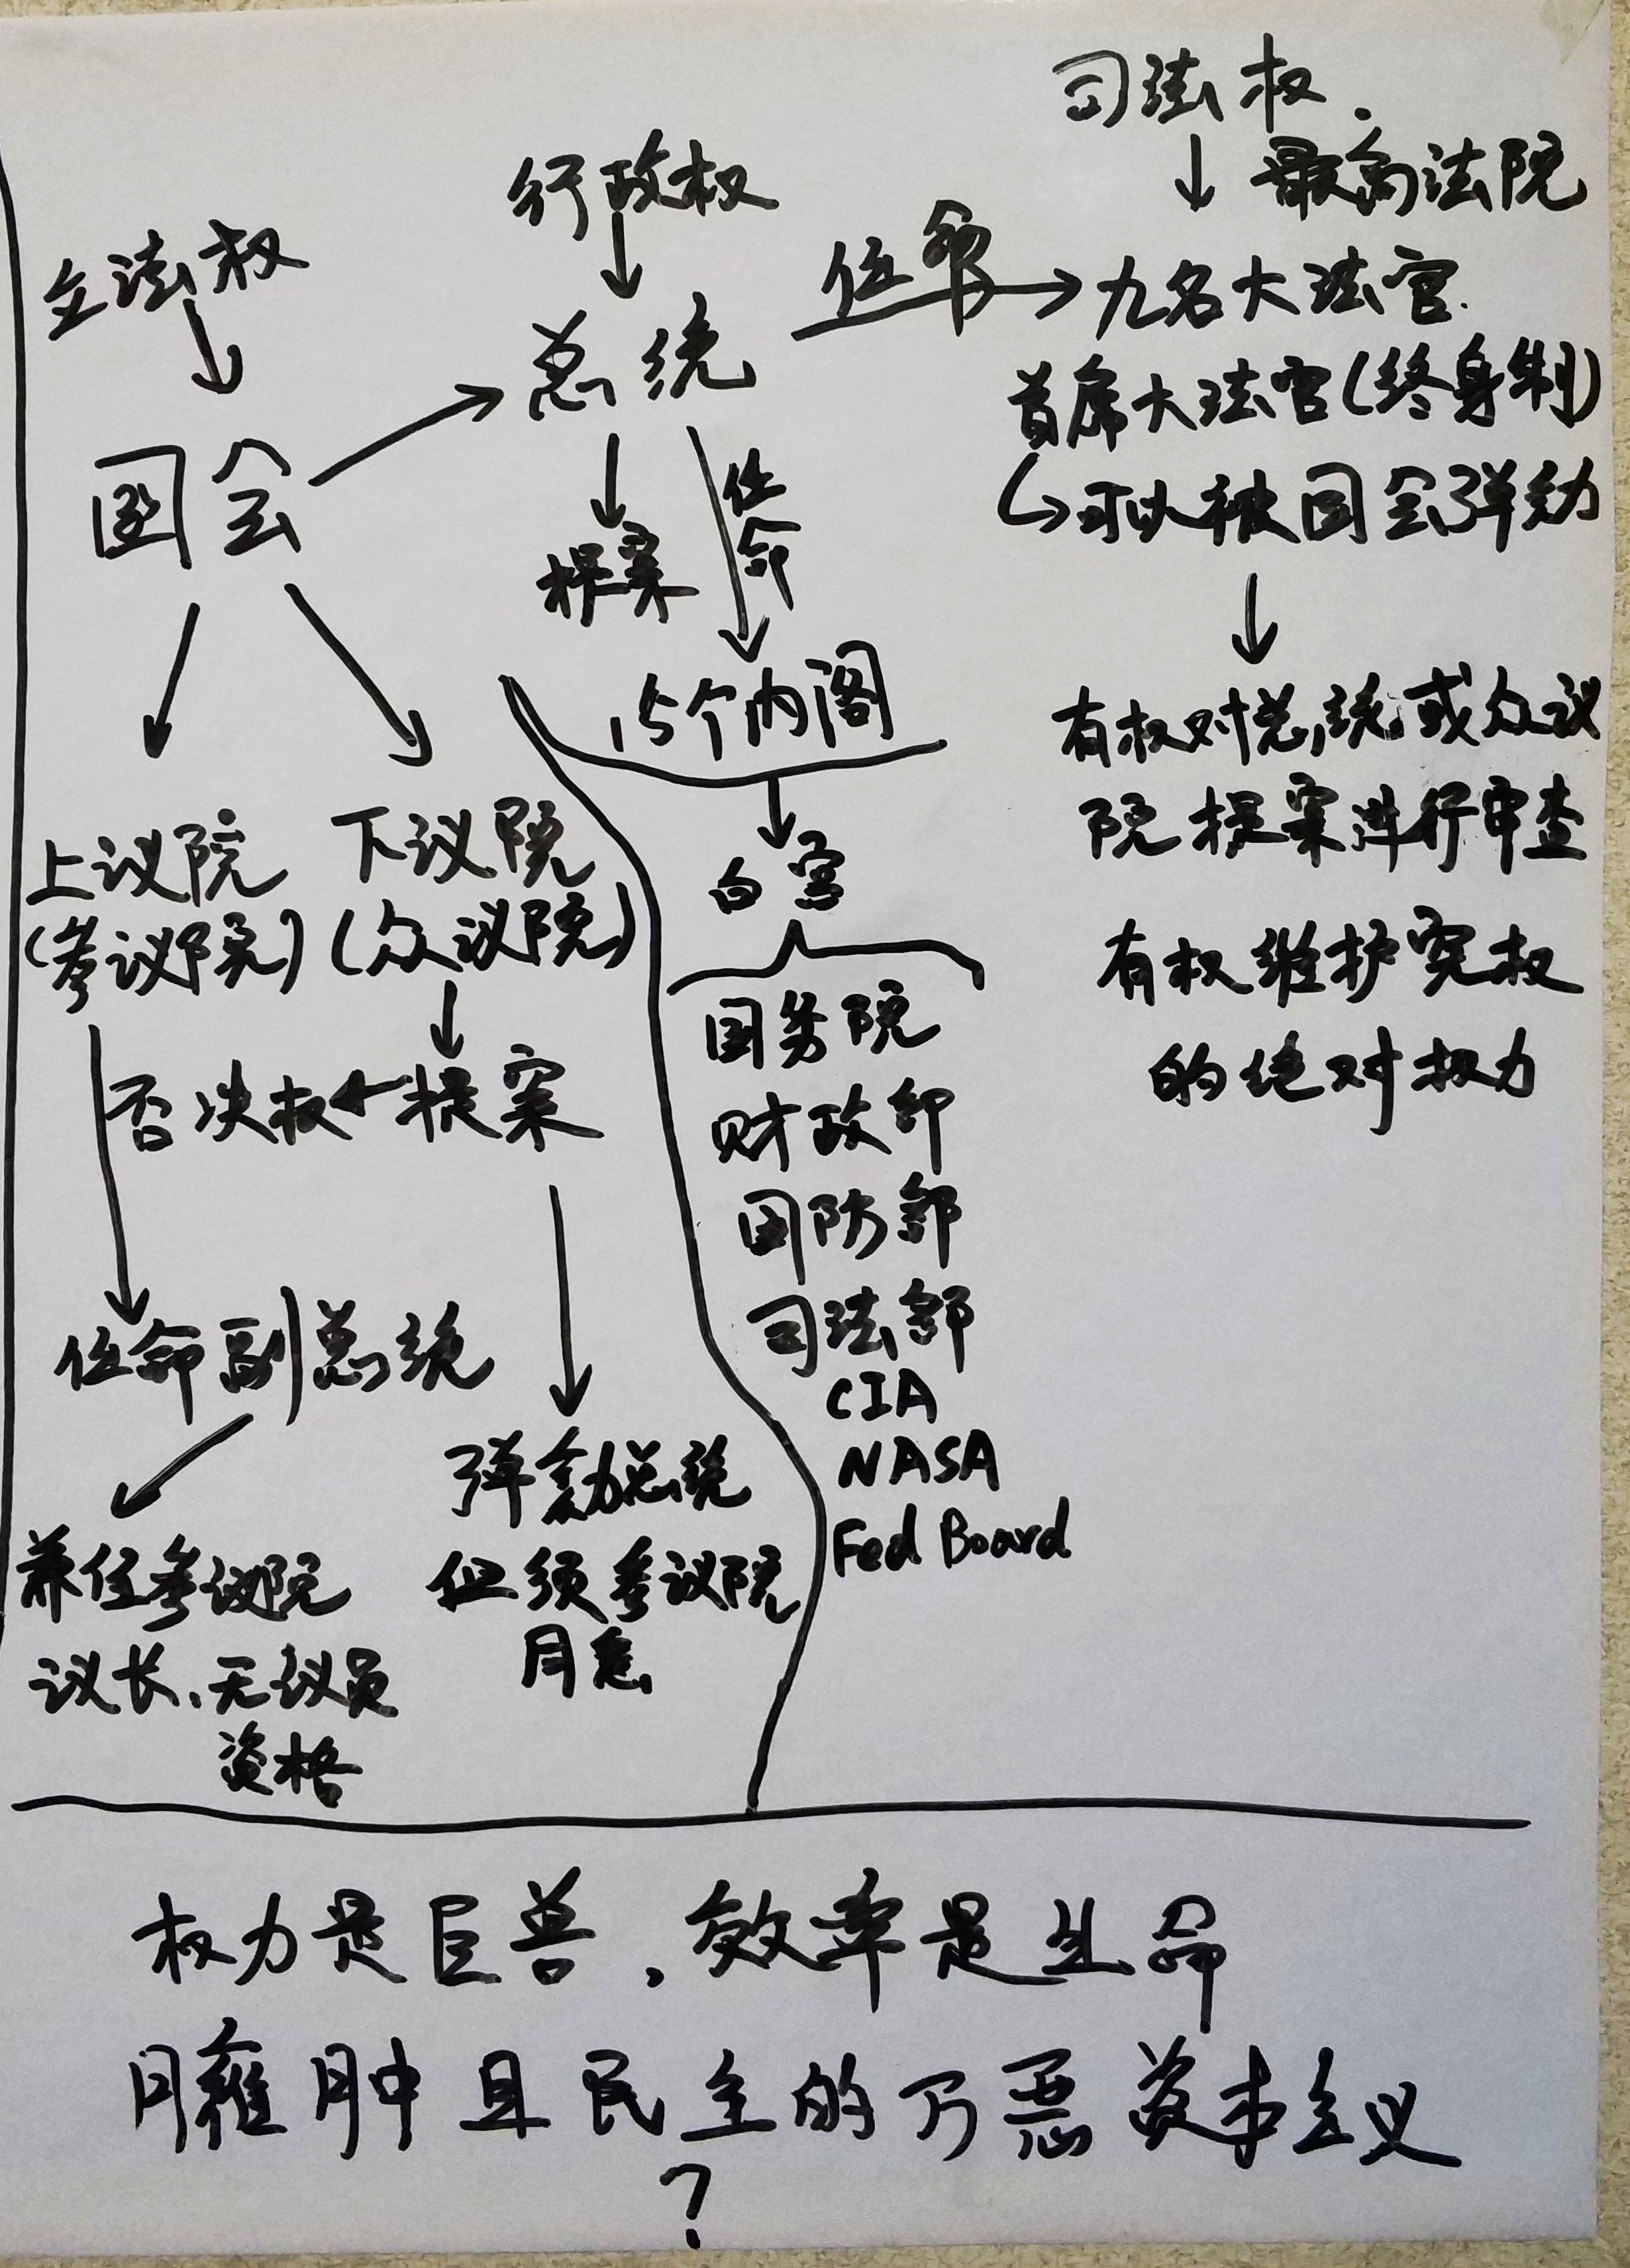 立法权
国会
上议院
(参议院)
下议院
(众议院)
否决权
提案
任命副总统
兼任参议院
议长、无议员
资格
弹劾总统
但须参议院
同意
行政权
总统
提案
任命
15个内阁
白宫
国务院
财政部
国防部
司法部
CIA
NASA
Fed Board
司法权.
最高法院
任命
九名大法官.
首席大法官(终身制)
可以被国会弹劾
有权对总统或众议
院提案进行审查
有权维护宪权
的绝对权力
权力是巨兽、效率是生命
臃肿且民主的万恶资本主义
?